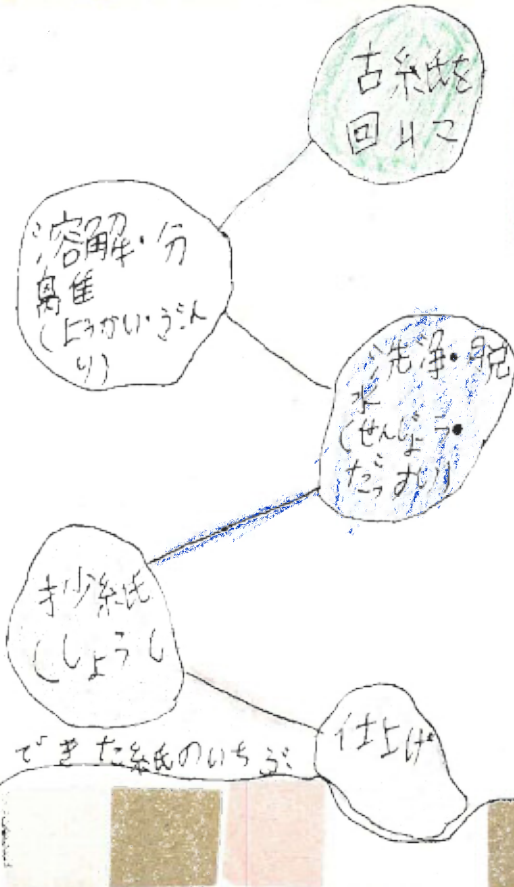 古紙を
回収
溶解・分
離
(ようかい・ぶん
り)
洗浄・脱
水
(せんじょう・
だっすい)
抄紙
(しょうし
仕上げ
できた紙のいちぶ